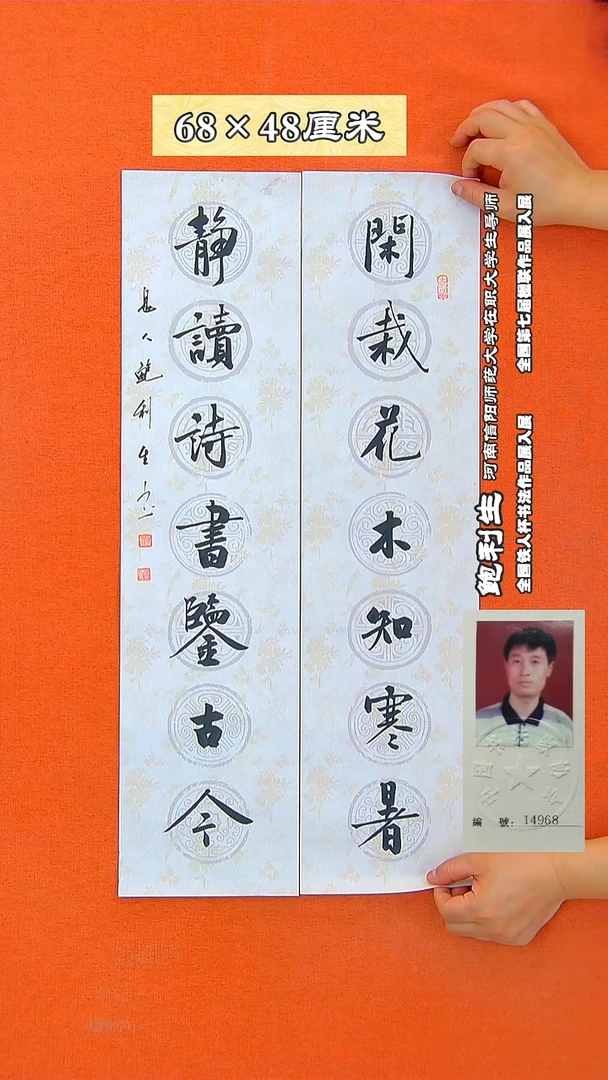 68×48厘米
閑栽花木知寒暑
靜讀詩書鑒古今
息人鮑利生书
鲍利生 河南信阳师范大学在职大学生导师
全国第七届楹联作品展入展
全国铁人杯书法作品展入展
編 號: 14968